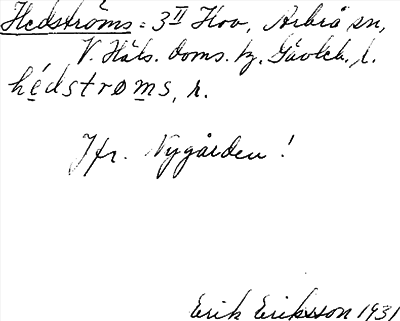 Hedströms = 3 II Hov, Arbrå sn,
V. Häls. doms. tg. Gävleb. l.
hédstrøms, n.
Jfr. Nygården !
Erik Eriksson 1931